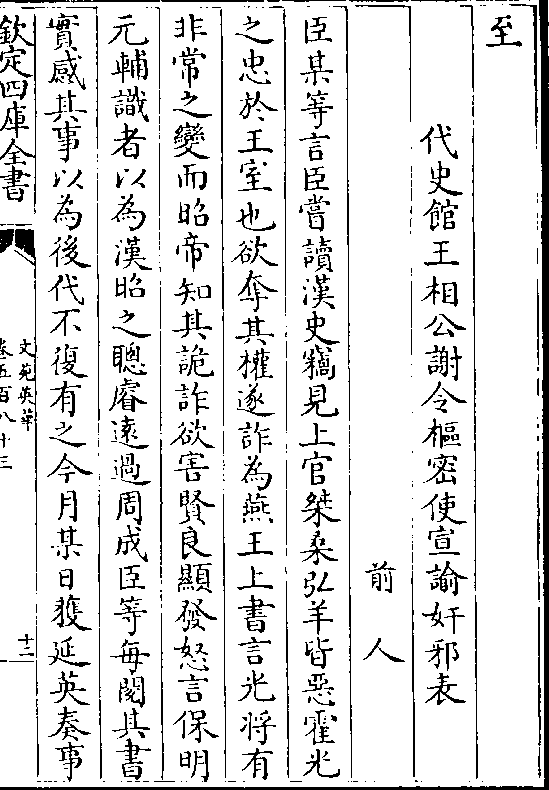 至
代史館王相公謝令樞密使宣諭奸邪表
前人
臣某等言臣嘗讀漢史竊見上官桀桑弘羊皆惡霍光
之忠於王室也欲奪其權遂詐為燕王上書言光將有
非常之變而昭帝知其詭詐欲害賢良顯發怒言保明
元輔識者以為漢昭之聰睿遠過周成臣等每閱其書
實感其事以為後代不復有之今月某日獲延英奏事
欽定四庫全書
文苑英華
卷五百八十三
十三